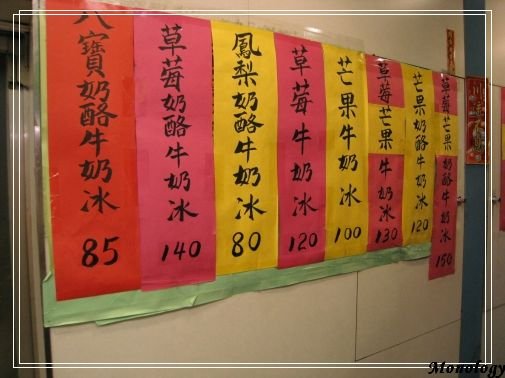 八寶奶酪牛奶冰 85
草莓奶酪牛奶冰 140
鳳梨奶酪牛奶冰 80
草莓牛奶冰 120
芒果牛奶冰 100
草莓芒果牛奶冰 130
芒果奶酪牛奶冰 120
草莓芒果奶酪牛奶冰 150
Monology